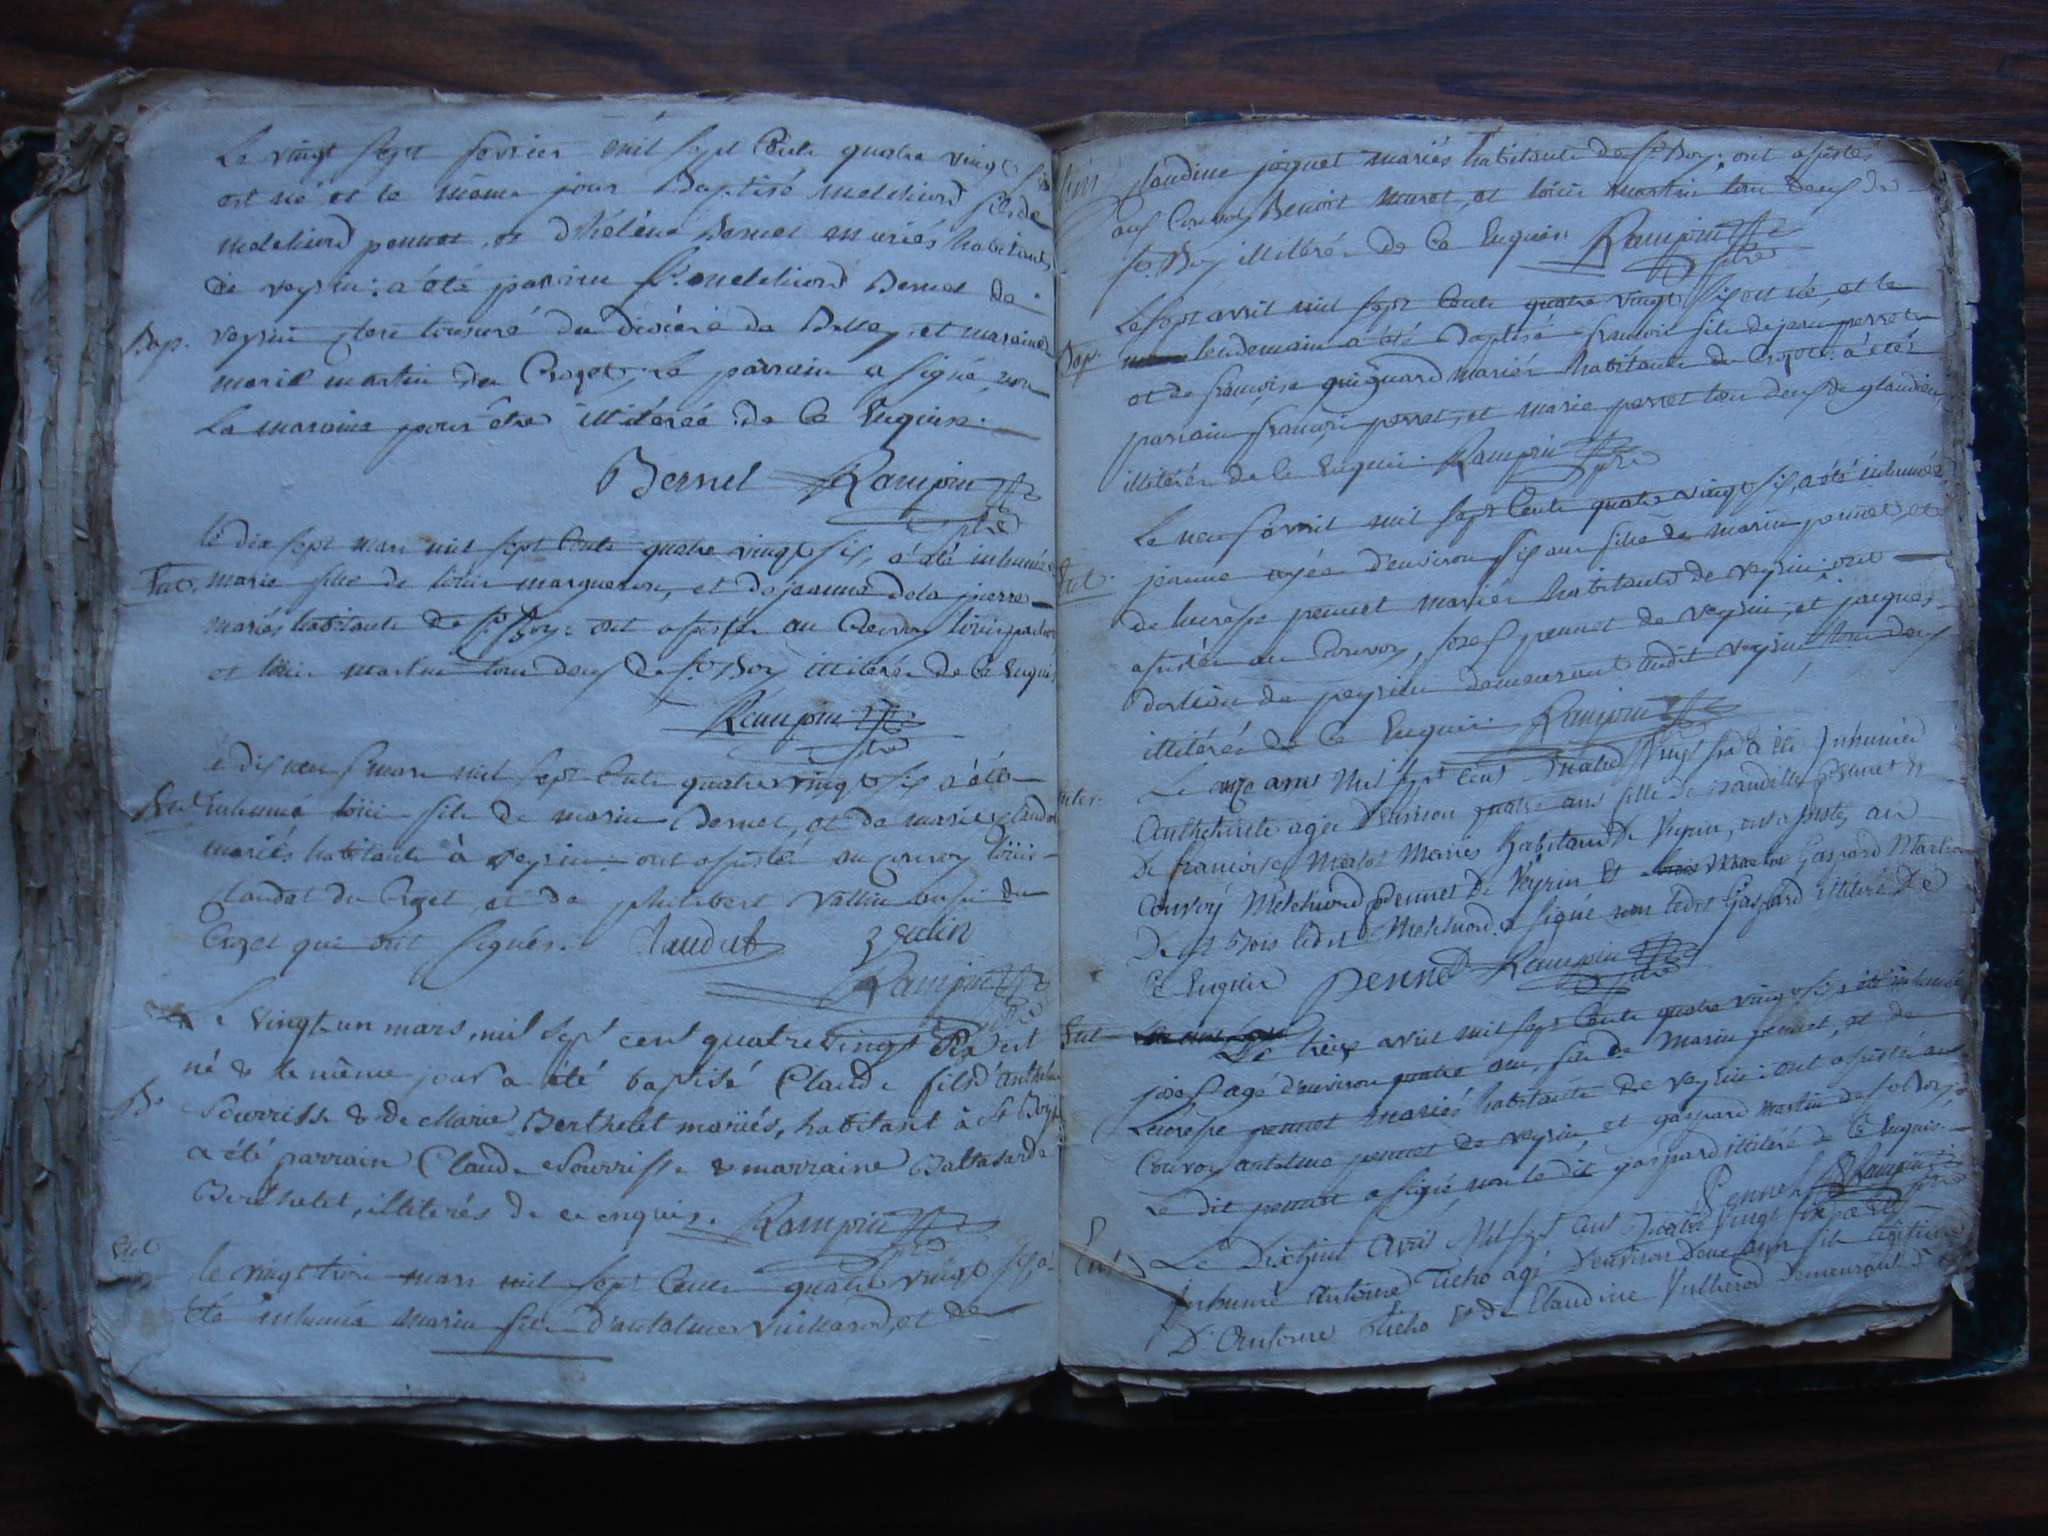 Le vingt sept fevrier mil sept Cents quatre vingt six
est né et le même jour Baptisé melchiord fils de
melchiord pennet et d'hélène Bernet mariés habitants
de veyrin : a été parrain Sr melchiord Bernet de
Bap. veyrin clerc tonsuré du diocèse de Belley, et maraine
marie martin du Crozet, Le parrain a signé, non
La maraine pour être illitérée de Ce Enquise.
Bernet Rampin
ptre
le dix sept mars mil sept Cents quatre vingt six, a été inhumée
marie fille de loüis margueron, et de jeanne dela pierre
mariés habitants de St Boys : ont assistés au Convoy loüis
et loüis martin tous deux de St Boy illitérés de Ce Enquis
Rampin
ptre
le dix neuf mars mil sept Cents quatre vingt six a été
inhumé loüis fils de marin Bernet, et de marie claudat
mariés habitants à veyrin : ont assisté au convoy loüis
claudat du Crozet et de philibert vallin aussi du
Crozet qui ont signés. Claudat
Rampin
ptre
Le vingt-un mars, mil sept cent quatre vingt Six est
né & le même jour a été baptisé Claude fils d'anthelme
B. Sourrisse & de Marie Berthelet mariés, habitant à St Boys
a été parrain Claude Sourrisse & marraine Baltasarde
Berthelet, illiterés de ce enquis. Rampin
ptre
le vingt trois mars mil sept Cents quatre vingt six, a
été inhumé marin fils d'antalme vuillarod, et de
claudine joquet mariés habitants de St Boy : ont assistés
au Convoy Benoit muret, et loüis martin tous deux de
St Boy illitérés de Ce Enquis. Rampin
ptre
Le sept avril mil sept Cents quatre vingt six est né, et le
Bap. lendemain a été Baptisé francois fils de jean perret
et de françoise guignard mariés habitants du Crozet : a été
parrain francois perret, et marie perret tous deux de glandieu
illitérés de Ce Enquis. Rampin
ptre
Le neuf avril mil sept Cents quatre vingt six, a été inhumée
jeanne agée d'environ six ans fille de marin pennet, et
de lucresse pennet mariés habitants de veyrin : ont
assistés au Convoy, josef pennet de veyrin, et jacques
de peyrieu demeurant audit veyrin tous deux
illitérés de Ce Enquis. Rampin
Le onze avril Mil sept Cent quatre vingt six a été Inhumée
Anthelmette agée D'environ quatre ans fille de Pennet &
De francoise Merlet Mariés habitans De Veyrin, ont assistés au
Convoy Melchiord Pennet De Veyrin Et Gaspard Martin
De St Bois ledit Melchiord a signé non ledit Gaspard illiteré De
Ce Enquis Pennet Rampin
ptre
Le treize avril mil sept Cents quatre vingt six a été inhumé
josef agé d'environ quatre ans, fils de marin pennet, et de
Lucresse pennet mariés habitants de veyrin : ont assistés au
Convoy antelme pennet de veyrin et gaspard martin de St Boy :
Le dit pennet a signé, non le dit gaspard illitéré de Ce Enquis.
Pennet Rampin
ptre
Le Dixhuit Avril Mil sept cent quatre vingt six a été
Inhumé Antoine Ticho agé D'environ Deux ans fils légitime
D'Antoine Ticho & de Claudine Vullierod Demeurant à